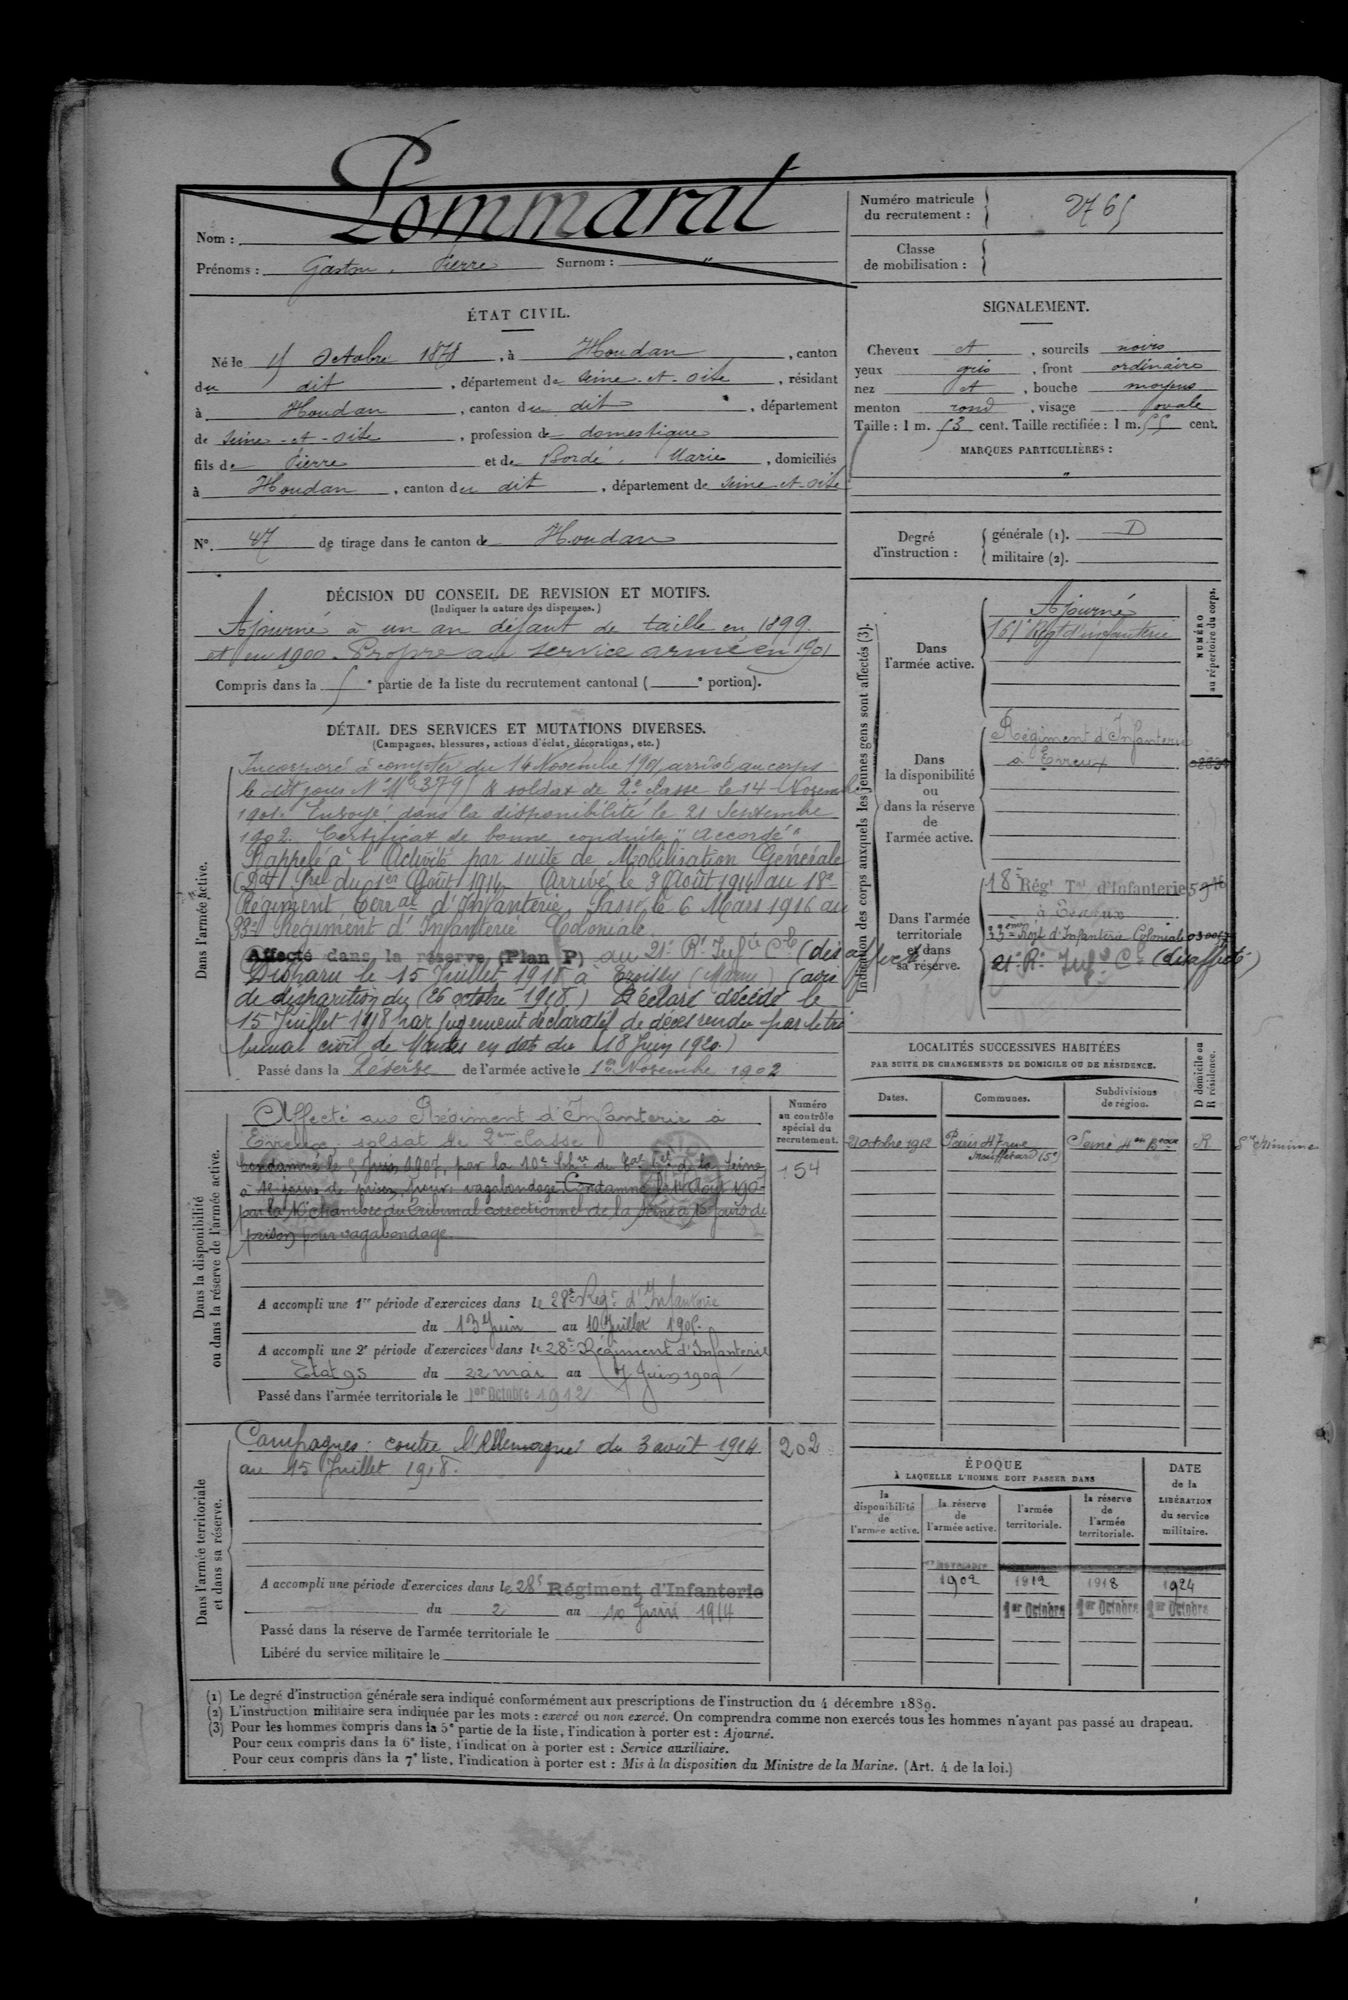 Nom : Pommarat
Prénoms : Gaston, Pierre Surnom : "
Numéro matricule du recrutement : 2765
Classe de mobilisation :
ÉTAT CIVIL.
Né le 5 Octobre 1878, à Houdan, canton
du dit, département de Seine-et-Oise, résidant
à Houdan, canton du dit, département
de Seine-et-Oise, profession de domestique
fils de Pierre et de Bordé, Marie, domiciliés
à Houdan, canton du dit, département de Seine-et-Oise
N°. 47 de tirage dans le canton de Houdan
SIGNALEMENT.
Cheveux et, sourcils noirs
yeux gris, front ordinaire
nez et, bouche moyens
menton rond, visage ovale
Taille : 1 m. 53 cent. Taille rectifiée : 1 m. 55 cent.
MARQUES PARTICULIÈRES :
"
Degré d'instruction : générale (1). D
militaire (2).
DÉCISION DU CONSEIL DE REVISION ET MOTIFS.
(Indiquer la nature des dispenses.)
Ajourné à un an défaut de taille en 1899
et en 1900. Propre au service armé en 1901
Compris dans la 5e partie de la liste du recrutement cantonal ( e portion).
DÉTAIL DES SERVICES ET MUTATIONS DIVERSES.
(Campagnes, blessures, actions d'éclat, décorations, etc.)
Dans l'armée active.
Incorporé à compter du 14 Novembre 1901 arrivé au corps
le dit jour N° Mle 3795 & soldat de 2e classe le 14 Novembre
1901. Envoyé dans la disponibilité le 21 Septembre
1902. Certificat de bonne conduite "Accordé"
Rappelé à l'Activité par suite de Mobilisation Générale
(Dct Prel du 1er Août 1914 Arrivé le 3 Août 1914 au 18e
Régiment Terral d'Infanterie. Passé le 6 Mars 1916 au
33e Régiment d'Infanterie Coloniale.
Affecté dans la réserve (Plan P) au 21e Rt Infie Cle (désaffecté)
Disparu le 15 Juillet 1918 à Troissy (Marne) (avis
de disparition du 26 octobre 1918) Déclaré décédé le
15 Juillet 1918 par jugement déclaratif de décès rendu par le tri
bunal civil de Mantes en date du 18 Juin 1920.)
Passé dans la Réserve de l'armée active le 1er Novembre 1902
Indication des corps auxquels les jeunes gens sont affectés (3).
NUMÉRO au répertoire du corps.
Dans l'armée active.
Ajourné
Régt d'infanterie
Dans la disponibilité ou dans la réserve de l'armée active.
Régiment d'Infanterie
à Evreux
Dans l'armée territoriale et dans sa réserve.
18e Régt Tal d'Infanterie
à Evreux
33ème Régt d'Infanterie Coloniale
21e Rt Infie Cle (désaffecté)
Dans la disponibilité ou dans la réserve de l'armée active.
Numéro au contrôle spécial du recrutement.
Affecté au Régiment d'Infanterie à
Evreux soldat de 2ème classe
154
Condamné le 5 Juin 1907, par la 10e Chre du Tal Cel de la Seine
à jours de prison pour vagabondage. Condamné le Août 190
par la chambre du Tribunal correctionnel de la Seine à 15 jours de
prison pour vagabondage
A accompli une 1re période d'exercices dans le 28e Régt d'Infanterie
du 13 Juin au 10 Juillet 190
A accompli une 2e période d'exercices dans le 28e Régiment d'Infanterie
Etat 95 du 22 mai au 7 Juin 1909
Passé dans l'armée territoriale le 1er Octobre 1912
LOCALITÉS SUCCESSIVES HABITÉES
PAR SUITE DE CHANGEMENTS DE DOMICILE OU DE RÉSIDENCE.
D domicile ou R résidence.
Dates. Communes. Subdivisions de région.
21 octobre 1912 Paris 47 rue Mouffetard (5e) Seine 4eme Beau R
Dans l'armée territoriale et dans sa réserve.
Campagnes : contre l'Allemagne du 3 août 1914
au 15 Juillet 1918.
202
A accompli une période d'exercices dans le 28e Régiment d'Infanterie
du 2 au 10 Juin 1914
Passé dans la réserve de l'armée territoriale le
Libéré du service militaire le
ÉPOQUE
À LAQUELLE L'HOMME DOIT PASSER DANS
la disponibilité de l'armée active. la réserve de l'armée active. l'armée territoriale. la réserve de l'armée territoriale.
DATE de la LIBÉRATION du service militaire.
1er Novembre
1902 1912 1918 1924
1er Octobre 1er Octobre 1er Octobre
(1) Le degré d'instruction générale sera indiqué conformément aux prescriptions de l'instruction du 4 décembre 1889.
(2) L'instruction militaire sera indiquée par les mots : exercé ou non exercé. On comprendra comme non exercés tous les hommes n'ayant pas passé au drapeau.
(3) Pour les hommes compris dans la 5e partie de la liste, l'indication à porter est : Ajourné.
Pour ceux compris dans la 6e liste, l'indication à porter est : Service auxiliaire.
Pour ceux compris dans la 7e liste, l'indication à porter est : Mis à la disposition du Ministre de la Marine. (Art. 4 de la loi.)